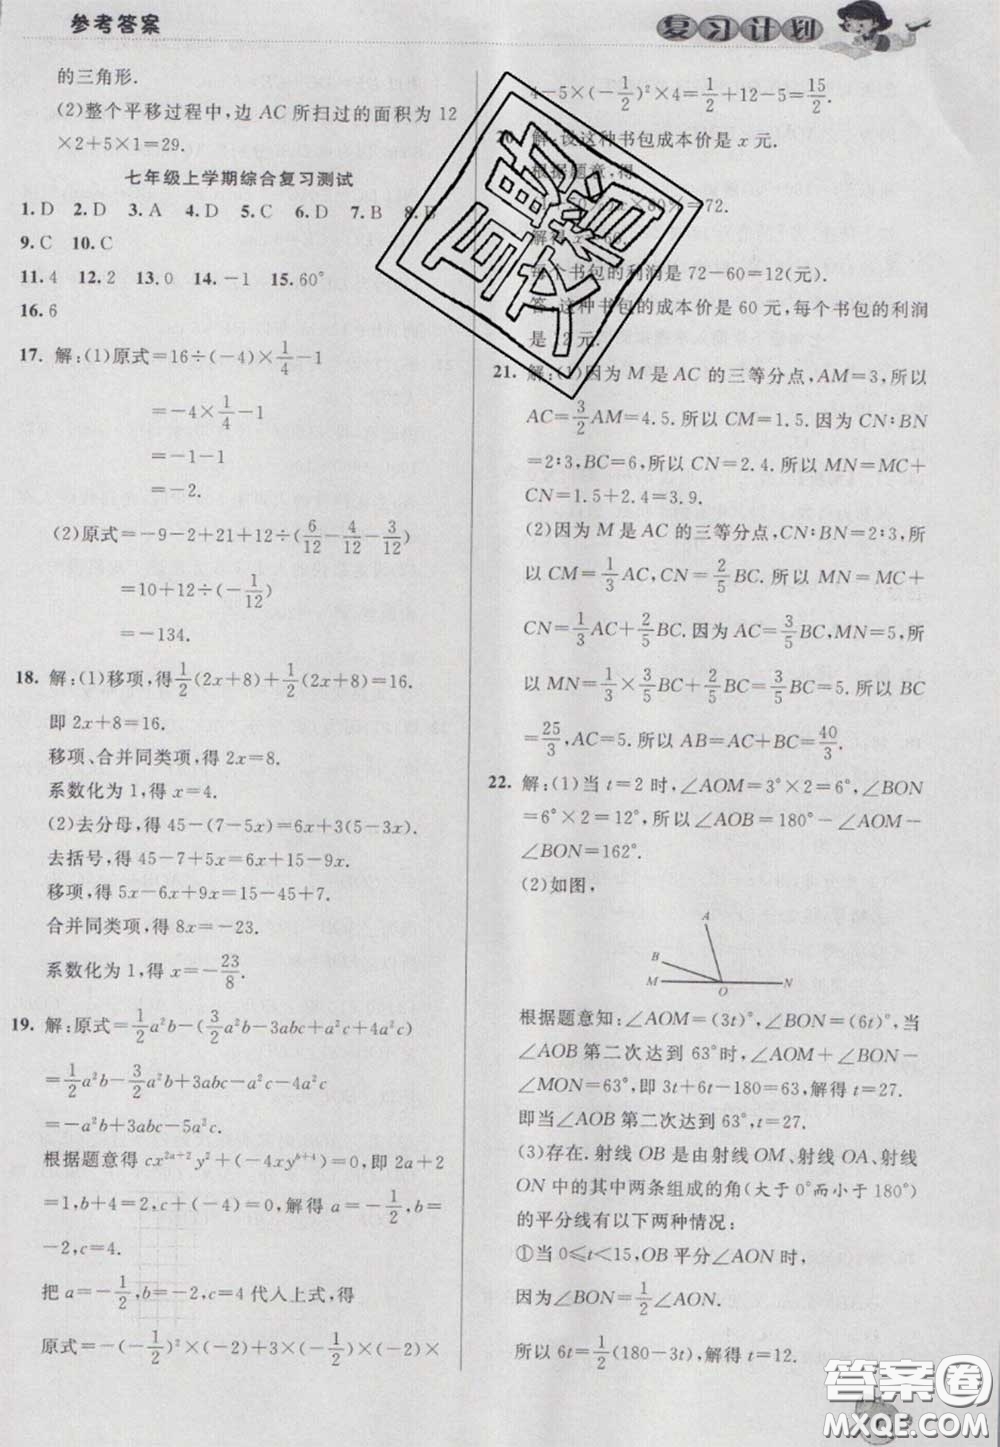 参考答案
复习计划
的三角形.
(2)整个平移过程中,边 AC 所扫过的面积为 12
×2+5×1=29.
七年级上学期综合复习测试
1. D 2. D 3. A 4. D 5. C 6. D 7. B 8. B
9. C 10. C
11. 4 12. 2 13. 0 14. −1 15. 60°
16. 6
17. 解:(1)原式=16÷(−4)×1/4−1
=−4×1/4−1
=−1−1
=−2.
(2)原式=−9−2+21+12÷(6/12−4/12−3/12)
=10+12÷(−1/12)
=−134.
18. 解:(1)移项,得1/2(2x+8)+1/2(2x+8)=16.
即 2x+8=16.
移项、合并同类项,得 2x=8.
系数化为 1,得 x=4.
(2)去分母,得 45−(7−5x)=6x+3(5−3x).
去括号,得 45−7+5x=6x+15−9x.
移项,得 5x−6x+9x=15−45+7.
合并同类项,得 8x=−23.
系数化为 1,得 x=−23/8.
19. 解:原式=1/2a²b−(3/2a²b−3abc+a²c+4a²c)
=1/2a²b−3/2a²b+3abc−a²c−4a²c
=−a²b+3abc−5a²c.
根据题意得 cx²ᵃ⁺²y²+(−4xyᵇ⁺⁴)=0,即 2a+2
=1,b+4=2,c+(−4)=0,解得 a=−1/2,b=
−2,c=4.
把 a=−1/2,b=−2,c=4 代入上式,得
原式=−(−1/2)²×(−2)+3×(−1/2)×(−2)×
4−5×(−1/2)²×4=1/2+12−5=15/2.
20. 解:设这种书包成本价是 x 元.
根据题意,得
x×80%=72.
解得 x=60.
每个书包的利润是 72−60=12(元).
答:这种书包的成本价是 60 元,每个书包的利润
是 12 元.
21. 解:(1)因为 M 是 AC 的三等分点,AM=3,所以
AC=3/2AM=4.5.所以 CM=1.5.因为 CN∶BN
=2∶3,BC=6,所以 CN=2.4.所以 MN=MC+
CN=1.5+2.4=3.9.
(2)因为 M 是 AC 的三等分点,CN∶BN=2∶3,所
以 CM=1/3AC,CN=2/5BC.所以 MN=MN=CM+
CN=1/3AC+2/5BC.因为 AC=3/5BC,MN=5,所
以 MN=1/3×3/5BC+2/5BC=3/5BC=5.所以 BC
=25/3,AC=5.所以 AB=AC+BC=40/3.
22. 解:(1)当 t=2 时,∠AOM=3°×2=6°,∠BON
=6°×2=12°,所以∠AOB=180°−∠AOM−
∠BON=162°.
(2)如图,
A
B
M O N
根据题意知:∠AOM=(3t)°,∠BON=(6t)°,当
∠AOB 第二次达到 63°时,∠AOM+∠BON−
∠MON=63°,即 3t+6t−180=63,解得 t=27.
即当∠AOB 第二次达到 63°,t=27.
(3)存在.射线 OB 是由射线 OM、射线 OA、射线
ON 中的其中两条组成的角(大于 0°而小于 180°)
的平分线有以下两种情况:
①当 0≤t<15,OB 平分∠AON 时,
因为∠BON=1/2∠AON.
所以 6t=1/2(180−3t),解得 t=12.
答案圈
MXQE.COM